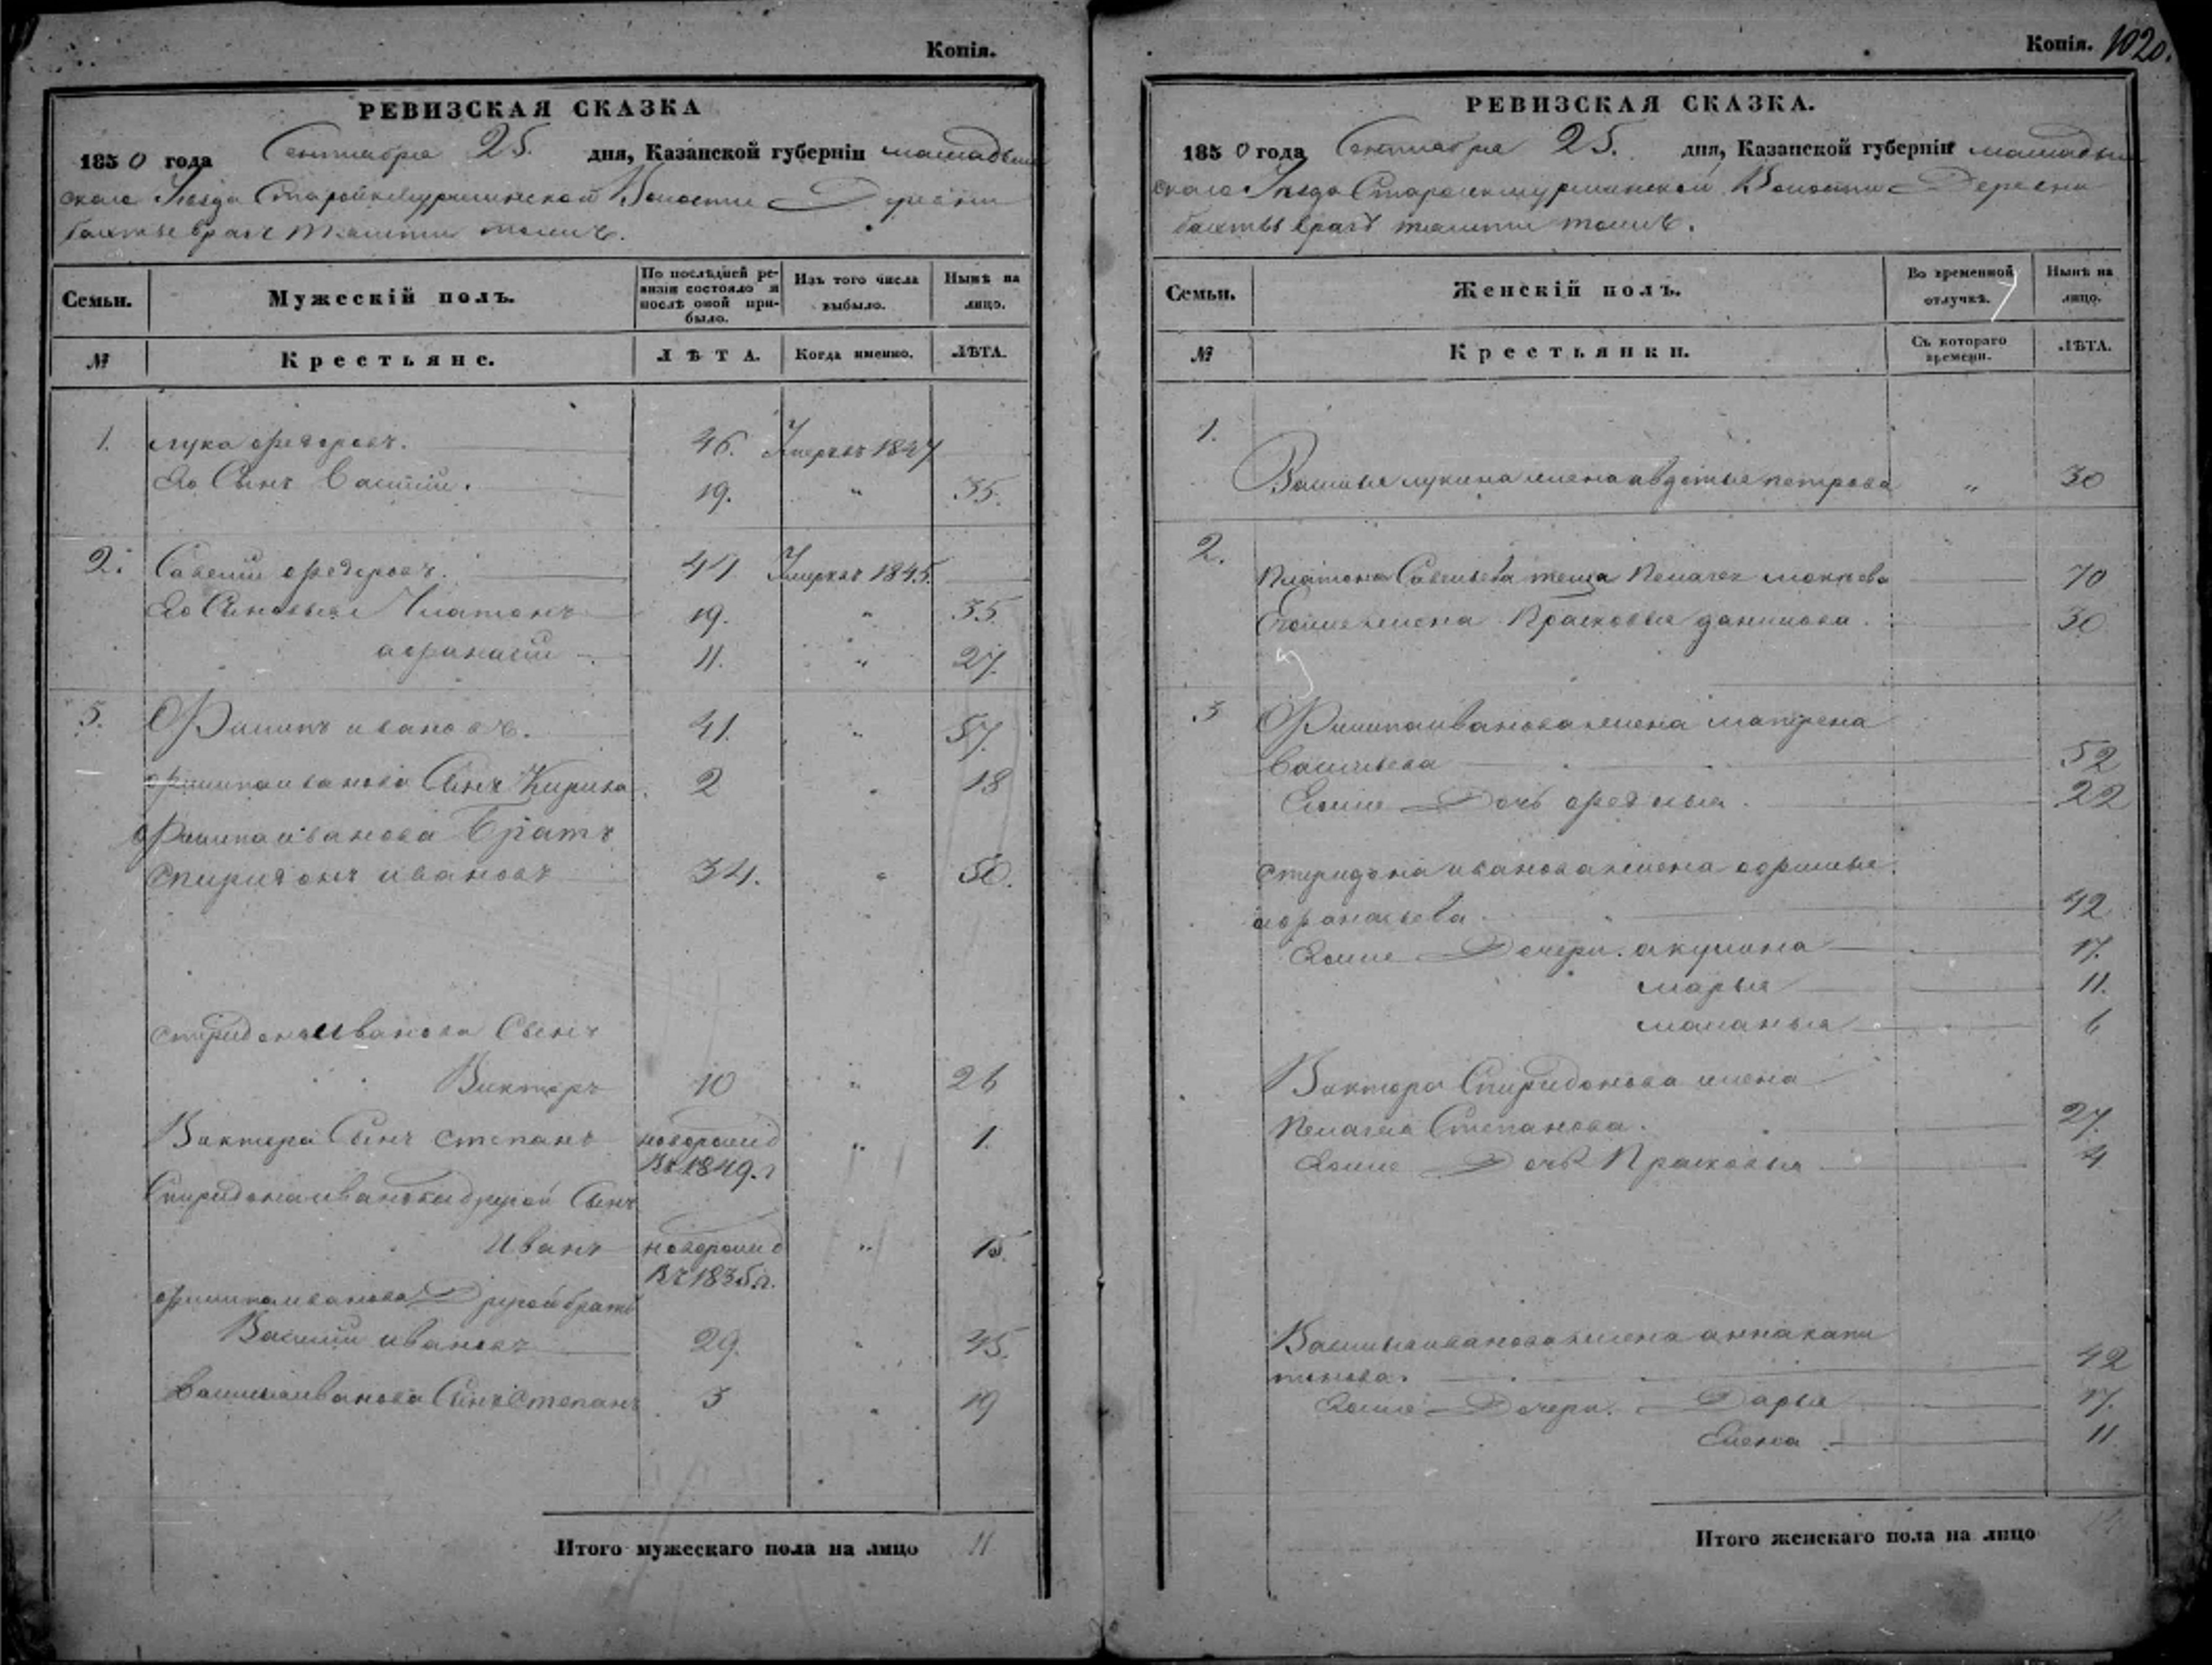 Копія.
РЕВИЗСКАЯ СКАЗКА
1850 года Сентября 25. дня, Казанской губерніи мамадыш
скаго Уезда Старойкмурзинской Волости Деревни
враг
Семьи. Мужескій полъ. По послѣдней ревизіи состояло и послѣ оной прибыло. Изъ того числа выбыло. Нынѣ на лицо.
№ Крестьяне. ЛѢТА. Когда именно. ЛѢТА.
1. лука федоровъ. 46. Умеръ въ 1847
Его Сынъ Василий. 19. " 35.
2. Савелий федоровъ. 44 Умеръ въ 1845.
Его Сыновья Платонъ 19. " 35.
афанасий 11. " 27.
3. Филипъ ивановъ. 41. " 57.
филипа иванова Сынъ Кирила. 2 " 18
филипа иванова Братъ
спиридонъ ивановъ 34. " 50.
спиридона иванова Сынъ
Викторъ 10 " 26
Виктора Сынъ степанъ новорожд " 1.
Въ 1849. г
Спиридона иванова другой Сынъ
Иванъ новорожд " 15.
Въ 1835. г.
филипа иванова Другой братъ
Василий ивановъ 29. " 45.
Василья иванова Сынъ Степанъ 3 " 19
Итого мужескаго пола на лицо 11
Копія. 1020.
РЕВИЗСКАЯ СКАЗКА.
1850 года Сентября 25. дня, Казанской губерніи мамадыш
скаго Уезда Старойкмурзинской Волости Деревни
враг
Семьи. Женскій полъ. Во временной отлучкѣ. Нынѣ на лицо.
№ Крестьянки. Съ котораго времени. ЛѢТА.
1.
Василья лукина жена авдотья петрова " 30
2.
Платона Савельева теща Пелагея 70
Егоже жена Прасковья данилова. 30
3 Филипа иванова жена матрена
васильева 52
Егоже Дочь федосья. 22
спиридона иванова жена афимья
афанасьева 42
Егоже Дочери. акулина 17.
марья 11.
маланья 6
Виктора Спиридонова жена
Пелагея Степанова. 27.
Егоже Дочь Прасковья 4
Василья иванова жена анна капи
тонова. 42
Егоже Дочери. Дарья 17.
Елена 11
Итого женскаго пола на лицо